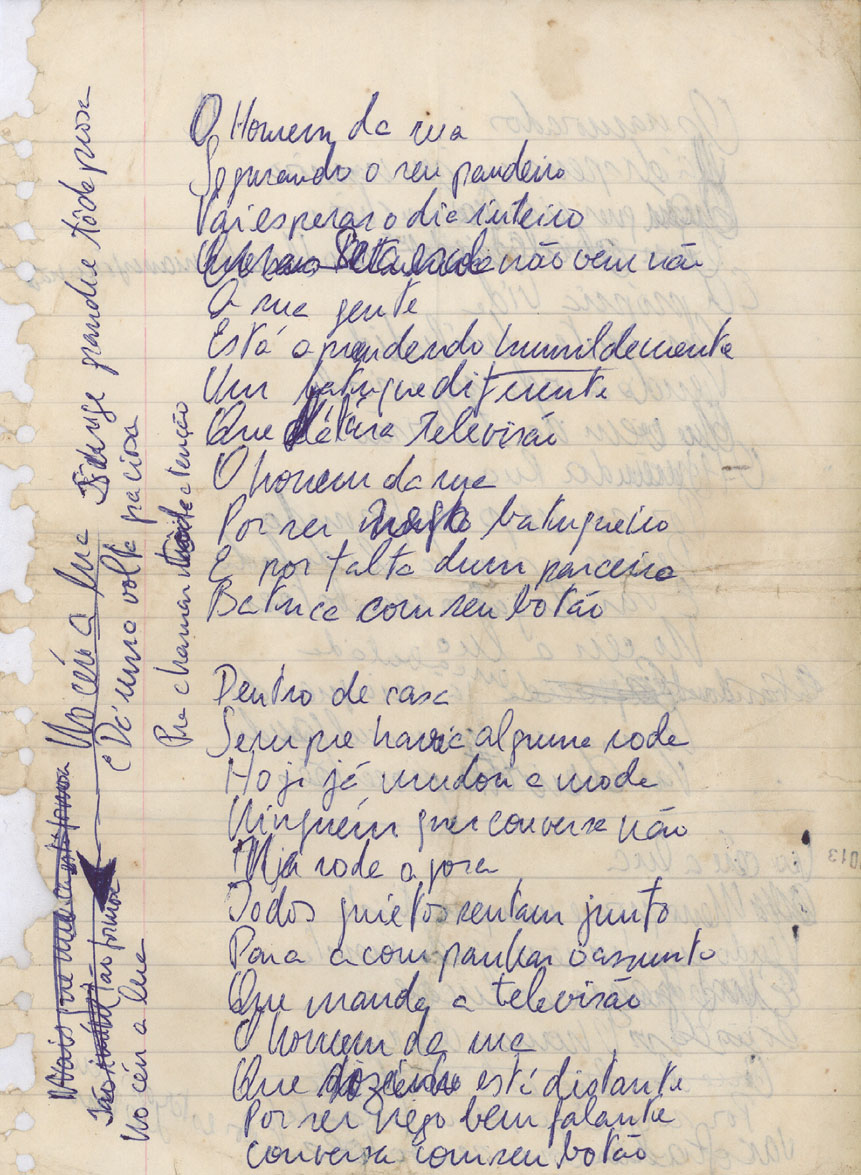 O Homem da rua
Segurando o seu pandeiro
Vai esperar o dia inteiro
não vem não
A sua gente
Está aprendendo humildemente
Um batuque diferente
Que televisão
O homem da rua
Por ser batuqueiro
E por falta dum parceiro
Batuca com seu botão
Dentro de casa
Sempre havia alguma roda
Hoji já mudou a moda
Ninguém quer conversa não
Na roda agora
Todos quietos sentam junto
Para acompanhar o assunto
Que manda a televisão
O homem da rua
Que está distante
Por ser nego bem falante
Conversa com seu botão
No céu a lua
Surge grande e tôda prosa
Dá uma volta graciosa
Pra chamar atenção
Mais que nunca
tão formosa
No céu a lua